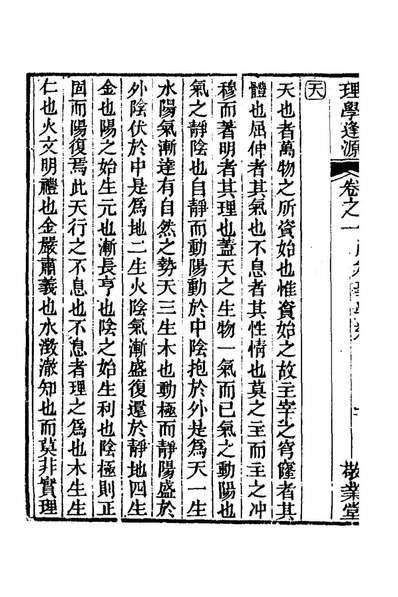 理學逢源 卷之一
敬業堂
天
天也者萬物之所資始也惟資始之故主宰之穹窿者其
體也屈伸者其氣也不息者其性情也莫之主而主之冲
穆而著明者其理也蓋天之生物一氣而已氣之動陽也
氣之靜陰也自靜而動陽動於中陰抱於外是為天一生
水陽氣漸達有自然之勢天三生木也動極而靜陽盛於
外陰伏於中是為地二生火陰氣漸盛復還於靜地四生
金也陽之始生元也漸長亨也陰之始生利也陰極則正
固而陽復焉此天行之不息也不息者理之為也木生生
仁也火文明禮也金嚴肅義也水澂澈知也而莫非實理